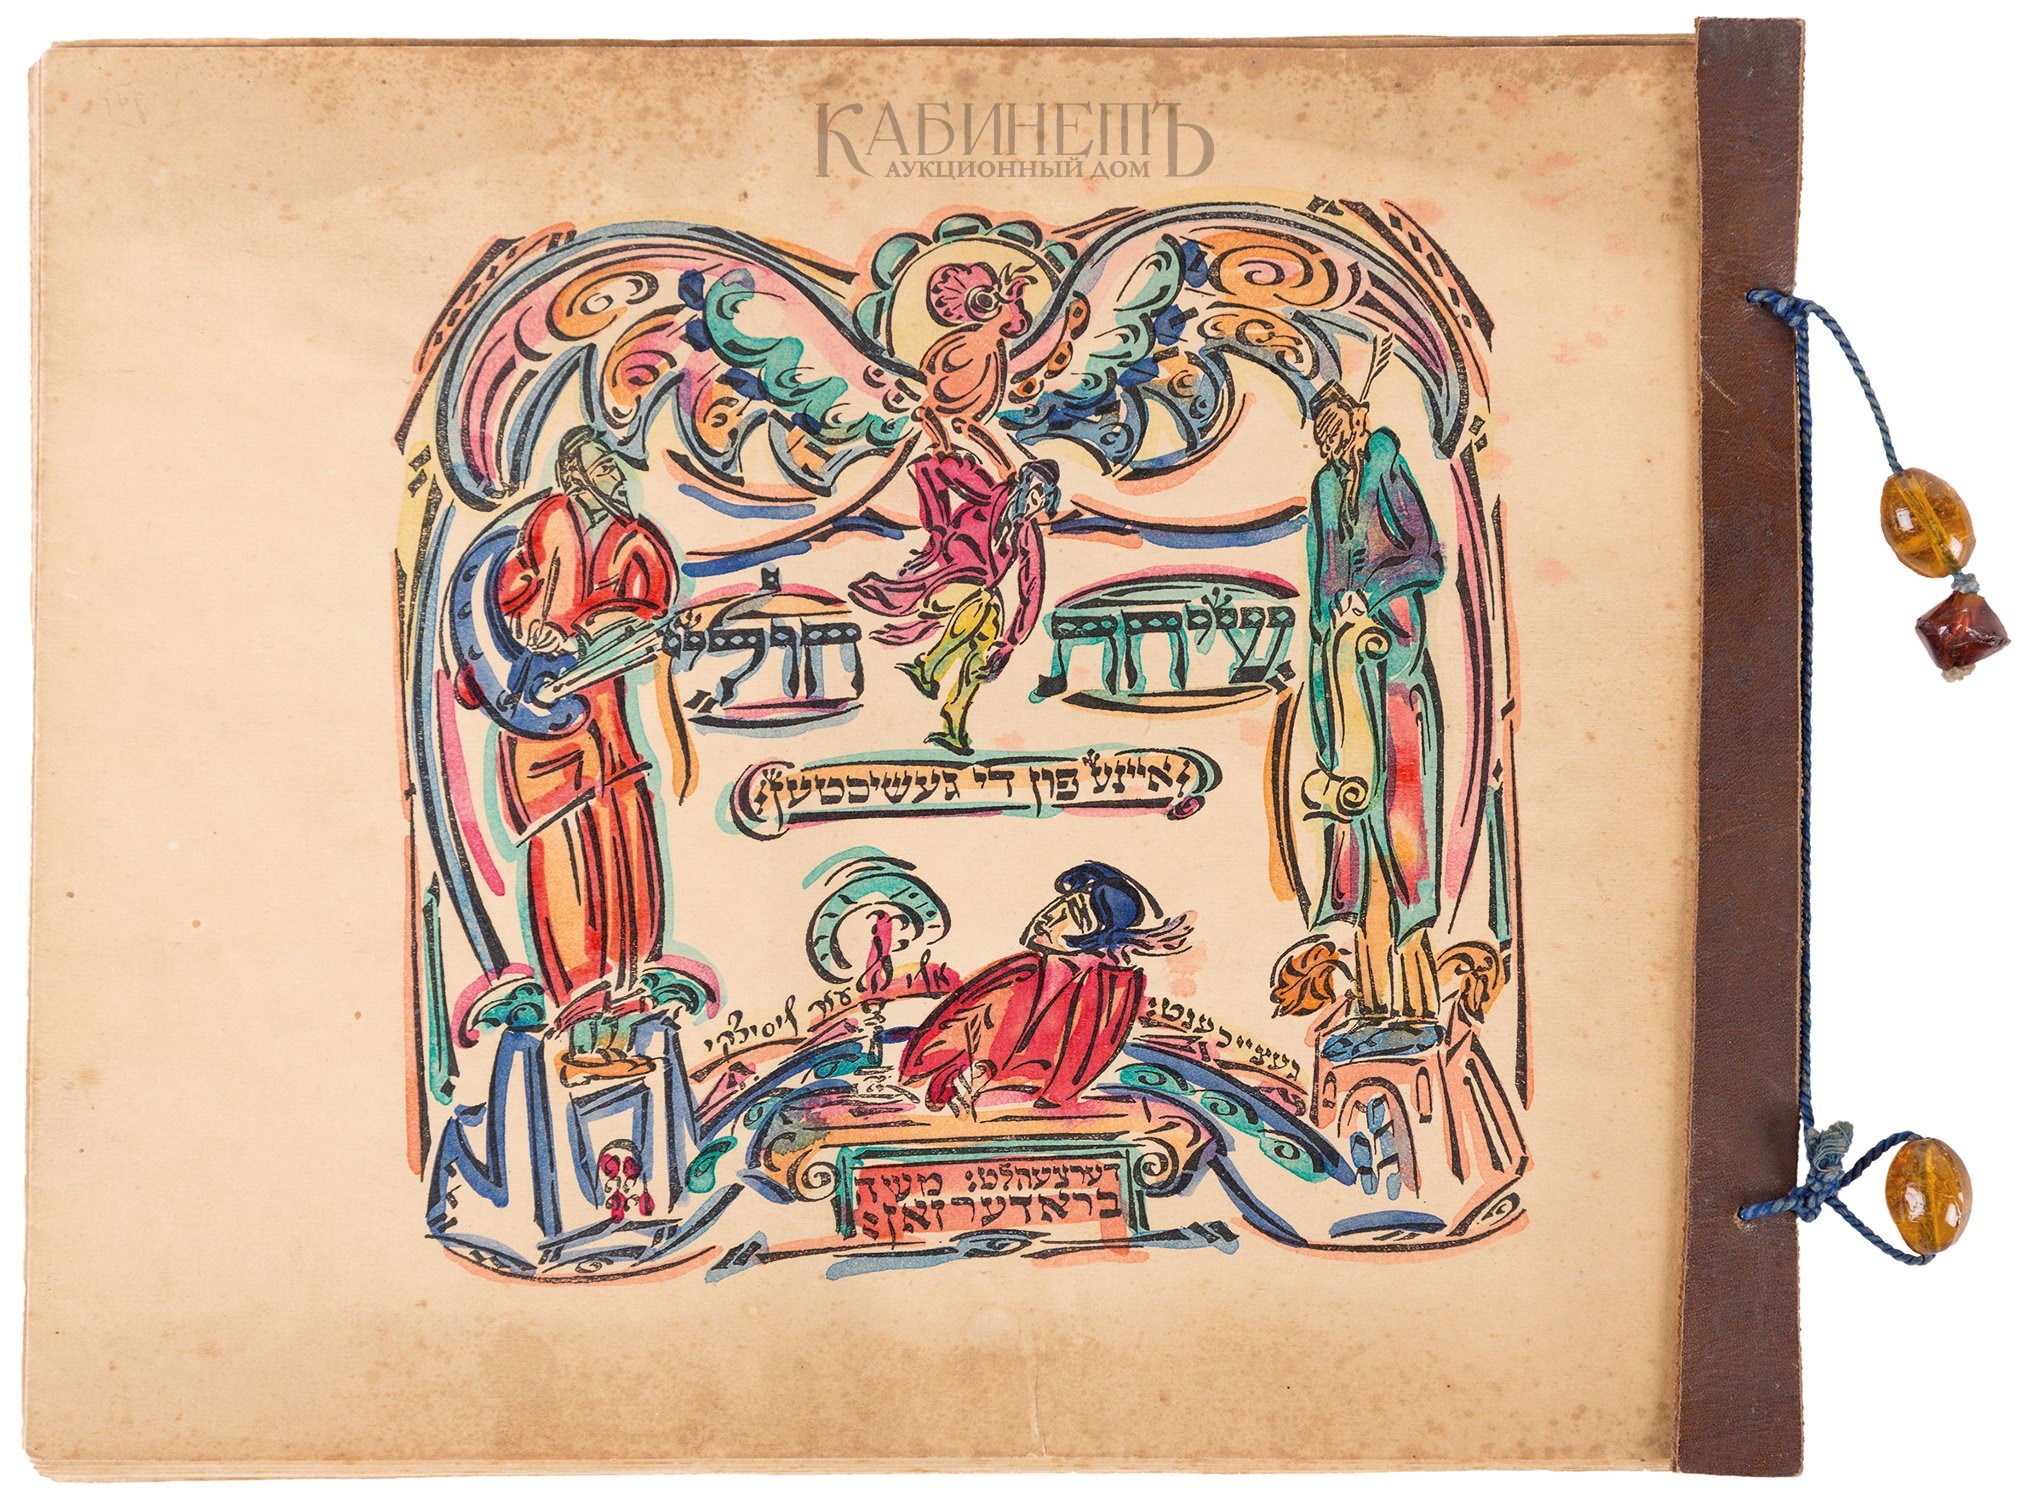 КАБИНЕТЪ
АУКЦИОННЫЙ ДОМ
שיחת חולין
אײנע פון די געשיכטען
געצייכענט: אליעזר ליסיצקי
דערצעהלט: משה
בראדערזאן: